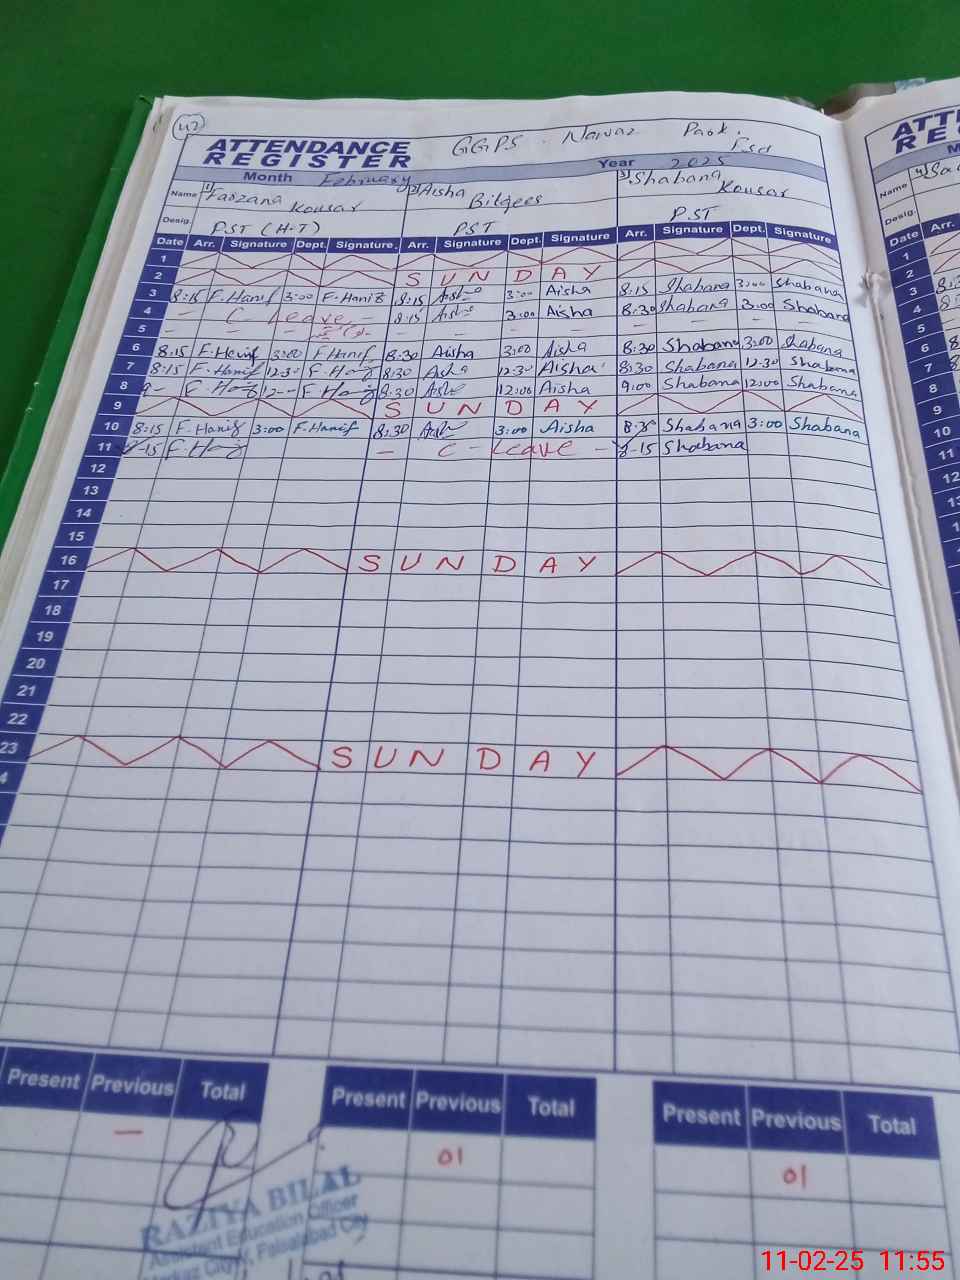 42
ATTENDANCE
REGISTER
GGPS . Nawaz Park. Fsd
Month February Year 2025
Name 1) Farzana Kousar 2) Aisha Bilqees 3) Shabana Kousar
Desig. PST (H-T) PST P.ST
Date Arr. Signature Dept. Signature Arr. Signature Dept. Signature Arr. Signature Dept. Signature
1
2 SUNDAY
3 8:15 F.Hanif 3:00 F.Hanif 8:15 Aisha 3:00 Aisha 8:15 Shabana 3:00 Shabana
4 – C Leave – 8:15 Aisha 3:00 Aisha 8:30 Shabana 3:00 Shabana
5 – – – – – – – –
6 8:15 F.Hanif 3:00 F.Hanif 8:30 Aisha 3:00 Aisha 8:30 Shabana 3:00 Shabana
7 8:15 F.Hanif 12:30 F.Hanif 8:30 Aisha 12:30 Aisha 8:30 Shabana 12:30 Shabana
8 F.Hanif F.Hanif 8:30 Aisha 12:00 Aisha 9:00 Shabana 12:00 Shabana
9 SUNDAY
10 8:15 F.Hanif 3:00 F.Hanif 8:30 Aisha 3:00 Aisha 8:30 Shabana 3:00 Shabana
11 8-15 F.Hanif – C – Leave – 8-15 Shabana
12
13
14
15
16 SUNDAY
17
18
19
20
21
22
23 SUNDAY
4
Present Previous Total Present Previous Total Present Previous Total
– 01 01
RAZIYA BILAL
Assistant Education Officer
Faisalabad City
11-02-25 11:55
ATT
RE
Name 4)
Desig.
Date Arr.
1
2
3
4
5
6
7
8
9
10
11
12
13